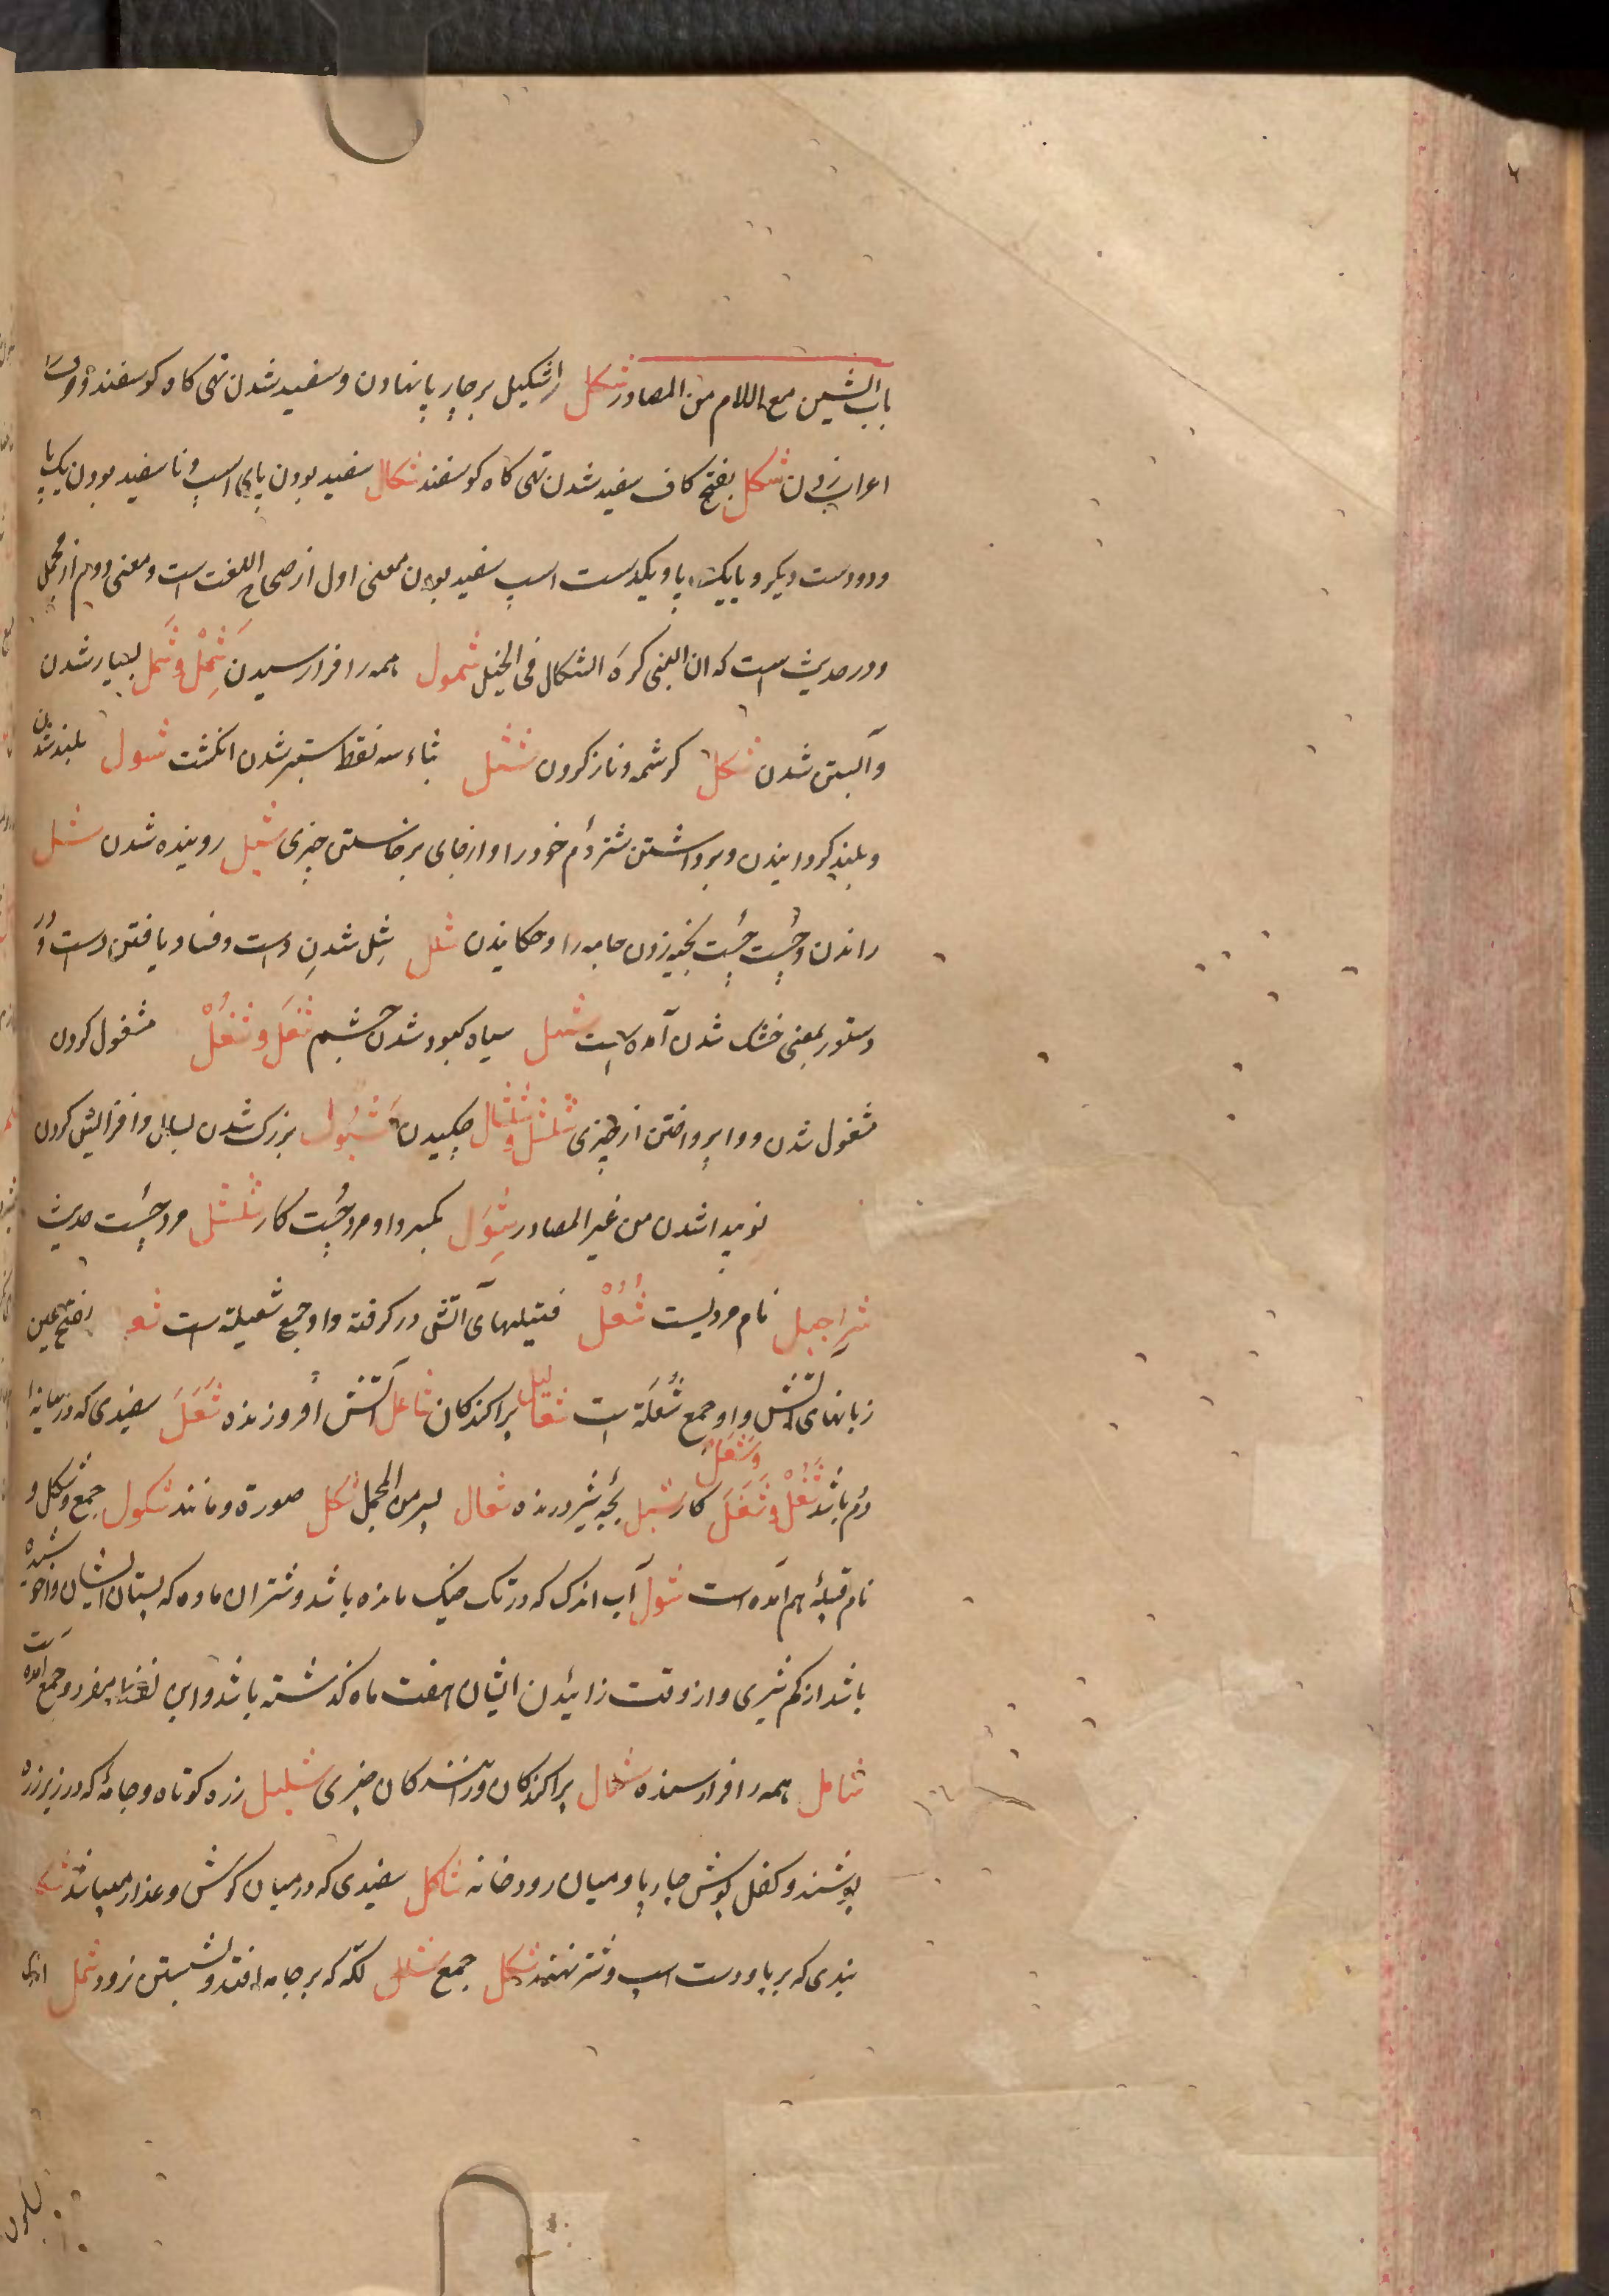 باب الشین مع اللام من المصادر شکل اشکیل بر چارپا نهادن و سفید شدن تهی کاه کوسفند و
اعراب زدن شکل بفتح کاف سفید شدن تهی کاه کوسفند شکال سفید بودن پای اسپ و نا سفید بودن یک پا
و دو دست دیکر و یا یک پا و یکدست اسپ سفید بودن معنی اول از صحاح اللغت است و معنی دوم از مجمل
و در حدیث است که ان النبی کره الشکال فی الخیل شمول همه را فرا رسیدن شَمْل و شَمَل بسیار شدن
و آبستن شدن شکل کرشمه و ناز کردن شثل بثاء سه نقطه ستبر شدن انکشت شول بلند شدن
و بلند کردانیدن و برداشتن شتر دُم خود را و از جای برخاستن چیزی شبل روینده شدن شل
راندن و چُست چُست بخیه زدن جامه را و چکانیدن شلل شِل شدنِ دست و فساد یافتن دست و در
دستور بمعنی خشک شدن آمده است شهل سیاه کبود شدن چشم شَغْل و شُغْل مشغول کردن
مشغول شدن و وا پرداختن از چیزی شلشل و شلشال چکیدن شُبُول بزرک شدن بسال و افزایش کردن
نو پیدا شدن من غیر المصادر شَوِل بکسر واو مرد چُست کار شلشل مرد چُست حدیث
شراجیل نام مردیست شُعُلْ فتیلهای آتش در کرفته و او جمع شعیلة است بفتح عین
زبانهای آتش و او جمع شُعلَة است شعالیل پراکندکان شاعل آتش افروزنده شَعَل سفیدی که در میانه
دُم باشد شُغْل و شَغَل و شغل کار شبل بچهٔ شیر درنده شعال من المجمل شکل صورة و مانند شکول جمع و شکل و
نام قبیلهٔ هم آمده است شول آب اندک که در تک خیک مانده باشد و شتران ماده که پستان ایشان
باشد از کم شیری و از وقت زائیدن ایشان هفت ماه کذشته باشد و این لفظ مفرد و جمع آمده است
شامل همه را فرا رسنده شلال پراکندکان و رانندکان چیزی شلیل زره کوتاه و جامهٔ که در زیر زره
پوشند و کفل پوش چارپا و میان رودخانه شاکل سفیدی که در میان کوش و عذار میباشد
بندی که بر پا و دست اسپ و شتر نهند شکل جمع شلل لکّه که بر جامه افتد و بشستن نرود شمل